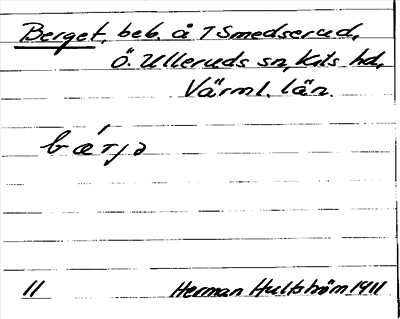 Berget, beb. å 1 Smedserud,
Ö. Ulleruds sn, Kils hd,
Värml. län.
bǽrjə
11 Herman Hultström 1911